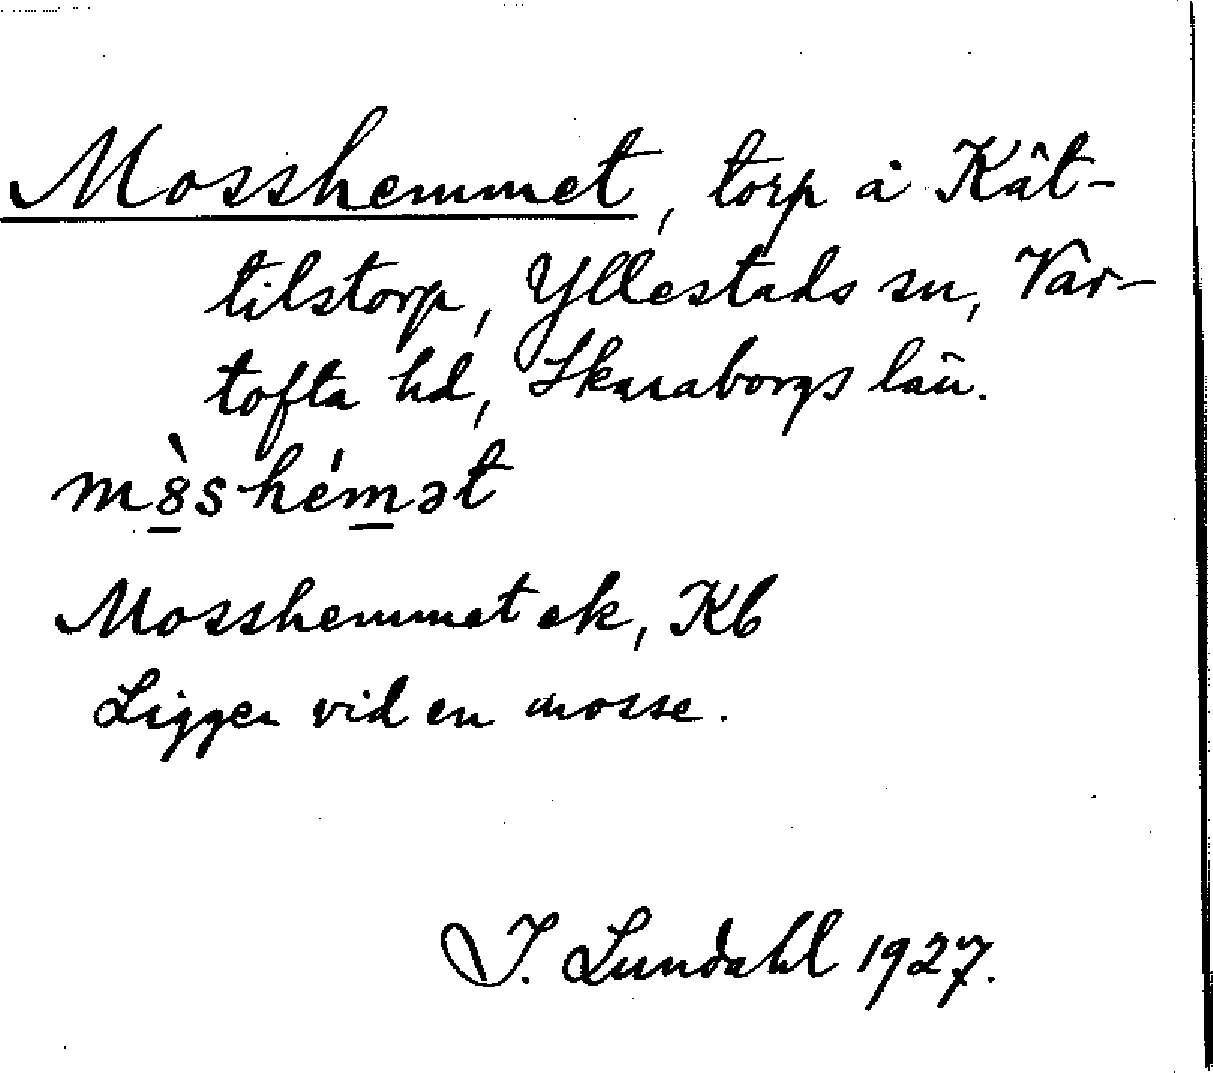 Mosshemmet, torp å Kät-
tilstorp, Yllestads sn, Var-
tofta hd, Skaraborgs län.
m8̠̀shém̠ət
Mosshemmet ek, Kb
Ligger vid en mosse.
I. Lundahl 1927.